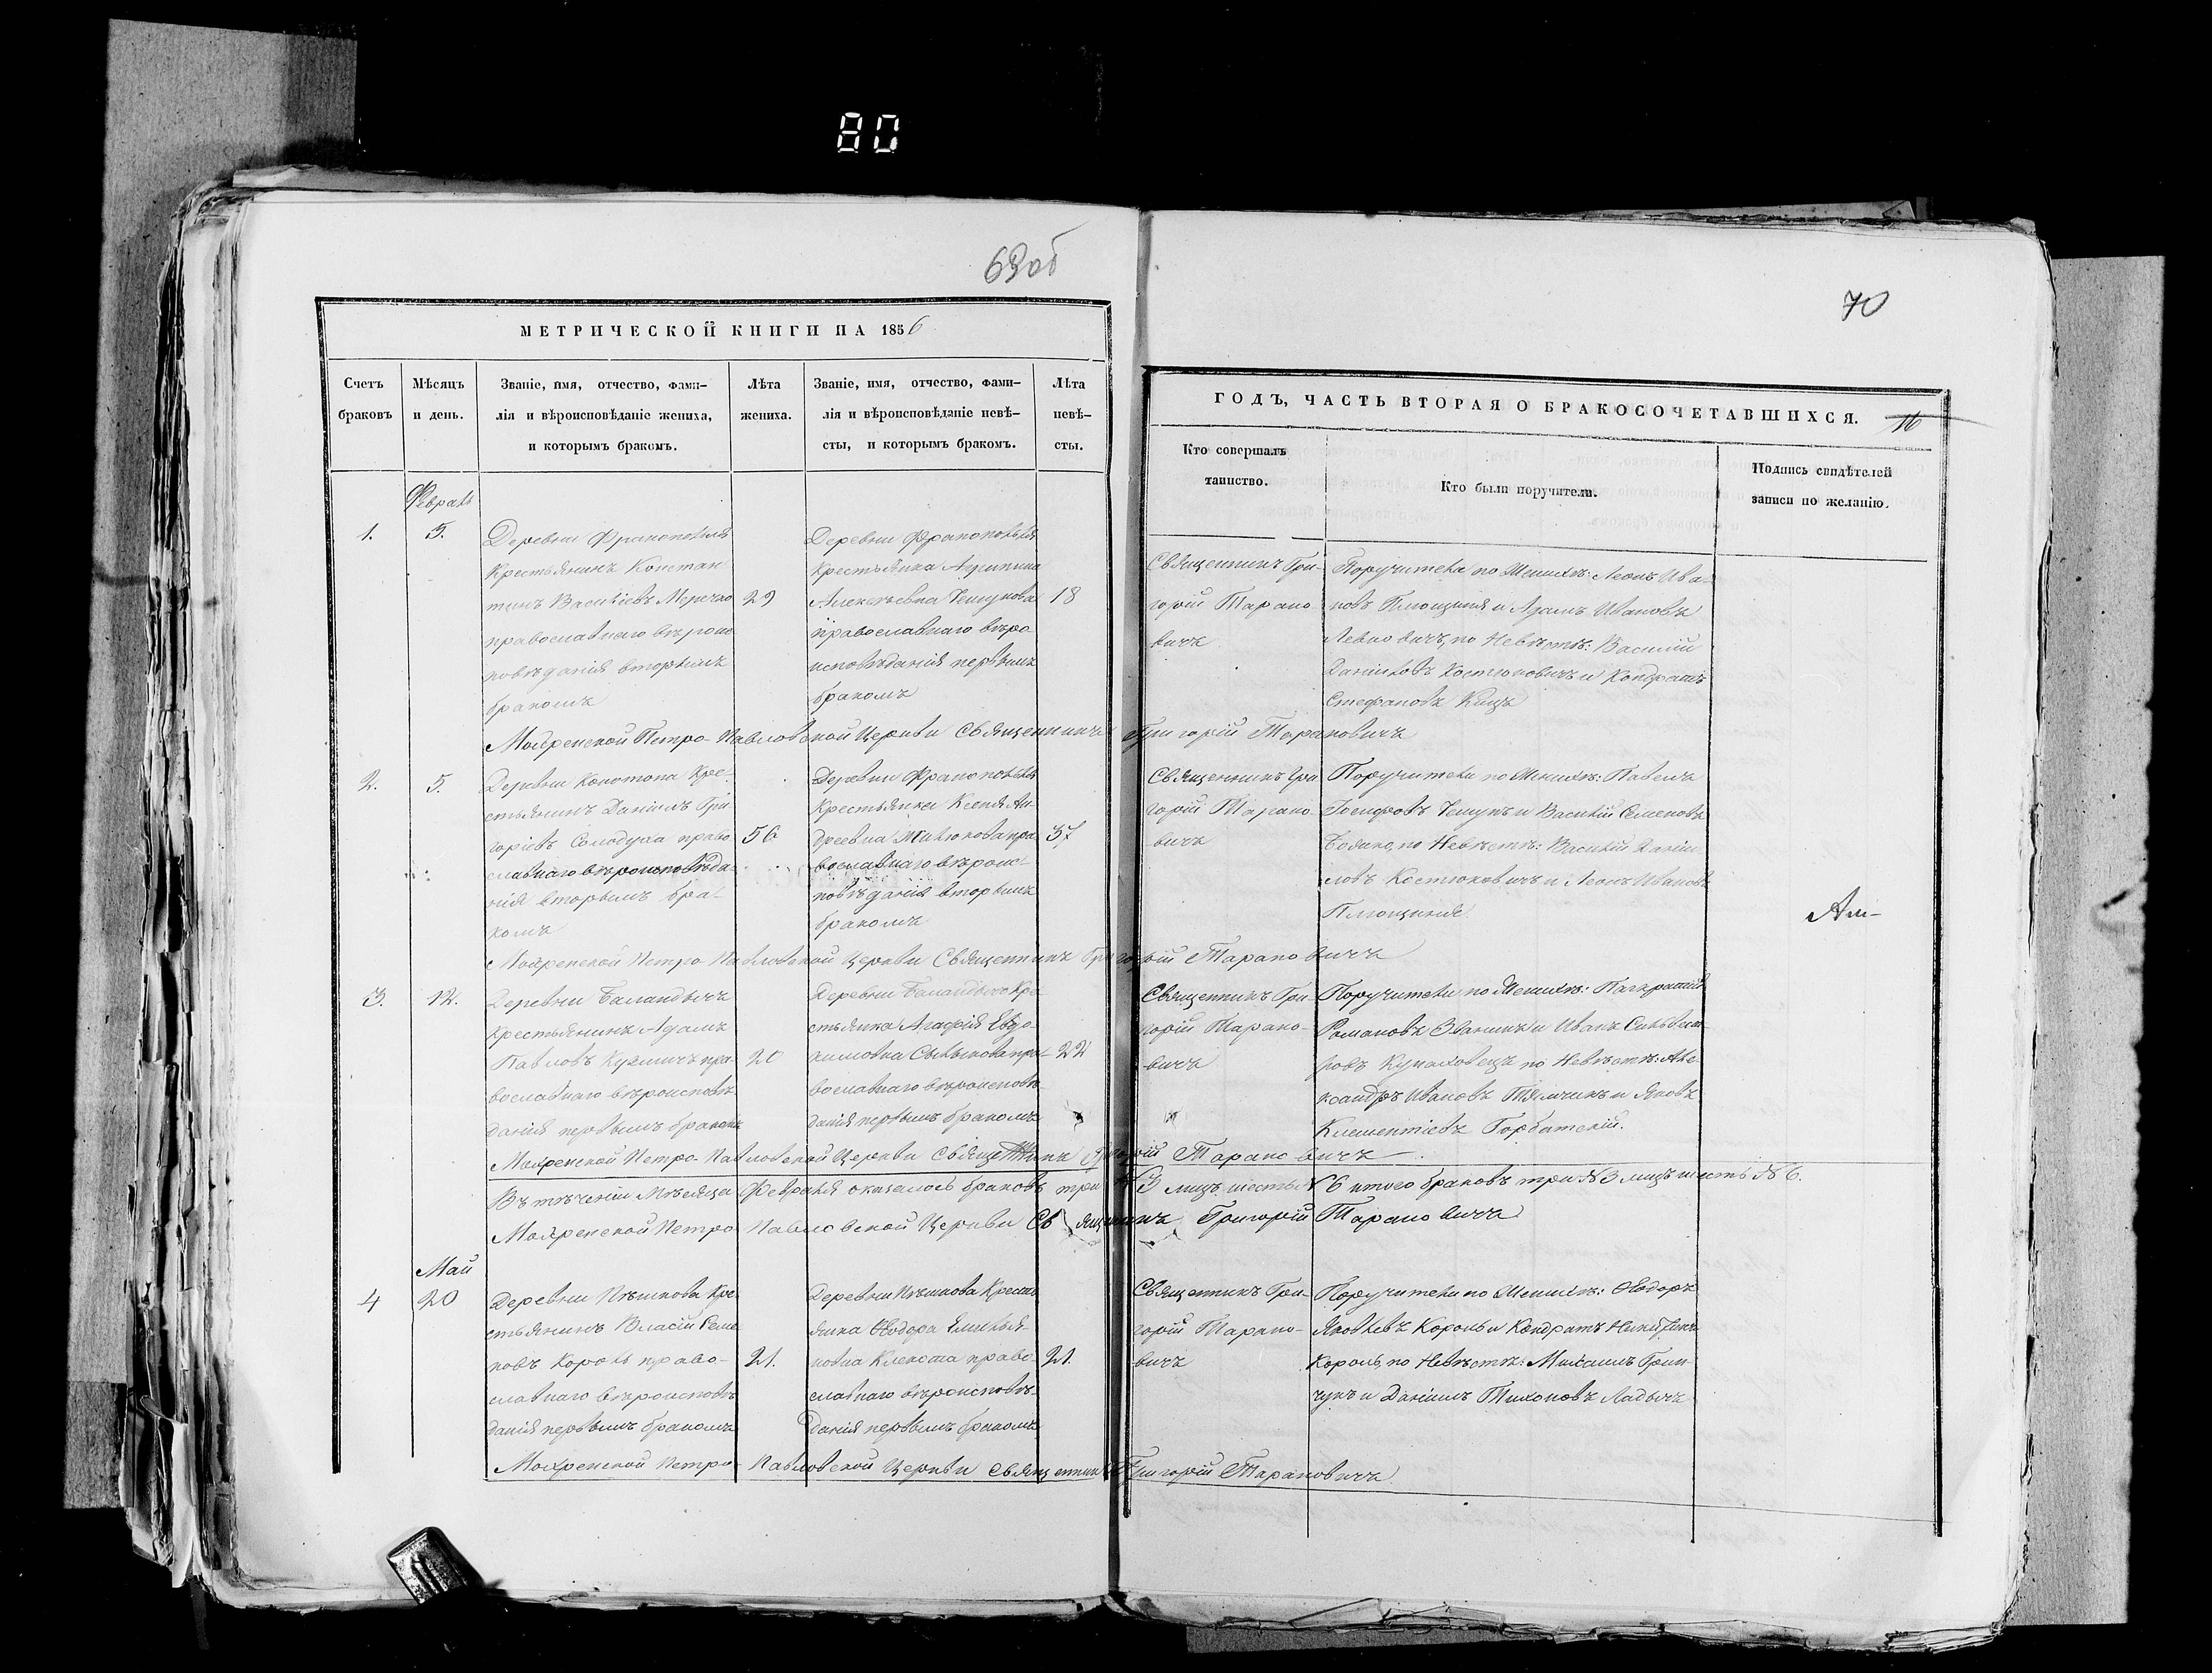 80
69об
70
МЕТРИЧЕСКОЙ КНИГИ НА 1856
ГОДЪ, ЧАСТЬ ВТОРАЯ О БРАКОСОЧЕТАВШИХСЯ.
16
Счетъ
браковъ
Мѣсяцъ
и день.
Званіе, имя, отчество, фами-
лія и вѣроисповѣданіе жениха,
и которымъ бракомъ.
Лѣта
жениха.
Званіе, имя, отчество, фами-
лія и вѣроисповѣданіе невѣ-
сты, и которымъ бракомъ.
Лѣта
невѣ-
сты.
Кто совершалъ
таинство.
Кто были поручители.
Подпись свидѣтелей
записи по желанію.
Февраль
1.
5.
Деревни
Крестьянинъ Констан
тинъ Василіевъ
православнаго вѣроис
повѣданія вторымъ
бракомъ
29
Деревни
Крестьянка Агрипина
Алексѣевна
православнаго вѣро
исповѣданія первымъ
бракомъ
18
Священникъ Гри-
горій Тарано
вичъ
Поручители по Женихѣ: Леонъ Ива-
новъ и Адамъ Ивановъ
по Невѣстѣ: Василій
Даніиловъ Костюковичъ и Кондратъ
Стефановъ Кицъ
Мокренской Петро-Павловской Церкви Священникъ Григорій Тарановичъ
2.
5.
Деревни Конотопа Кре-
стьянинъ Даніилъ Гри
горіевъ Солодуха право
славнаго вѣроисповѣда-
нія вторымъ бра-
комъ
56
Деревни
Крестьянка Ксенія Ан-
дреевна пра
вославнаго вѣроис-
повѣданія вторымъ
бракомъ
37
Священникъ Гри
горій Тарано-
вичъ
Поручители по Женихѣ: Павелъ
Іосифовъ и Василій Семеновъ
по Невѣстѣ: Василій Даніи
ловъ Костюковичъ и Леонъ Ивановъ
Мокренской Петро-Павловской Церкви Священникъ Григорій Тарановичъ
3.
12.
Деревни Баландичъ
крестьянинъ Адамъ
Павловъ пра-
вославнаго вѣроисповѣ-
данія первымъ бракомъ
20
Деревни Баландичъ Кре
стьянка Агафія Евдо-
кимовна пра-
вославнаго вѣроисповѣ
данія первымъ бракомъ
22
Священникъ Гри-
горій Тарано-
вичъ
Поручители по Женихѣ: Панкратій
Романовъ и Иванъ Сильвест-
ровъ по Невѣстѣ: Але-
ксандръ Ивановъ и Яковъ
Климентіевъ Горбатскій.
Мокренской Петро-Павловской Церкви Священникъ Григорій Тарановичъ
Въ теченіи Мѣсяца Февраля оказалось браковъ три №3 лицъ шесть №6 итого браковъ три №3 лицъ шесть №6.
Мокренской Петро-Павловской Церкви Священникъ Григорій Тарановичъ
Май
4
20
Деревни Пѣшкова Кре
стьянинъ Власій Семе
новъ Король право-
славнаго вѣроисповѣ
данія первымъ бракомъ
21.
Деревни Пѣшкова Кресть
янка Ѳеодора Емилья-
новна право-
славнаго вѣроисповѣ-
данія первымъ бракомъ
21.
Священникъ Гри-
горій Тарано-
вичъ
Поручители по Женихѣ: Ѳеодоръ
Яковлевъ Король и Кондратъ
Король, по Невѣстѣ: Михаилъ Грин
чукъ и Даніилъ Тихоновъ Ладычъ
Мокренской Петро-Павловской Церкви Священникъ Григорій Тарановичъ